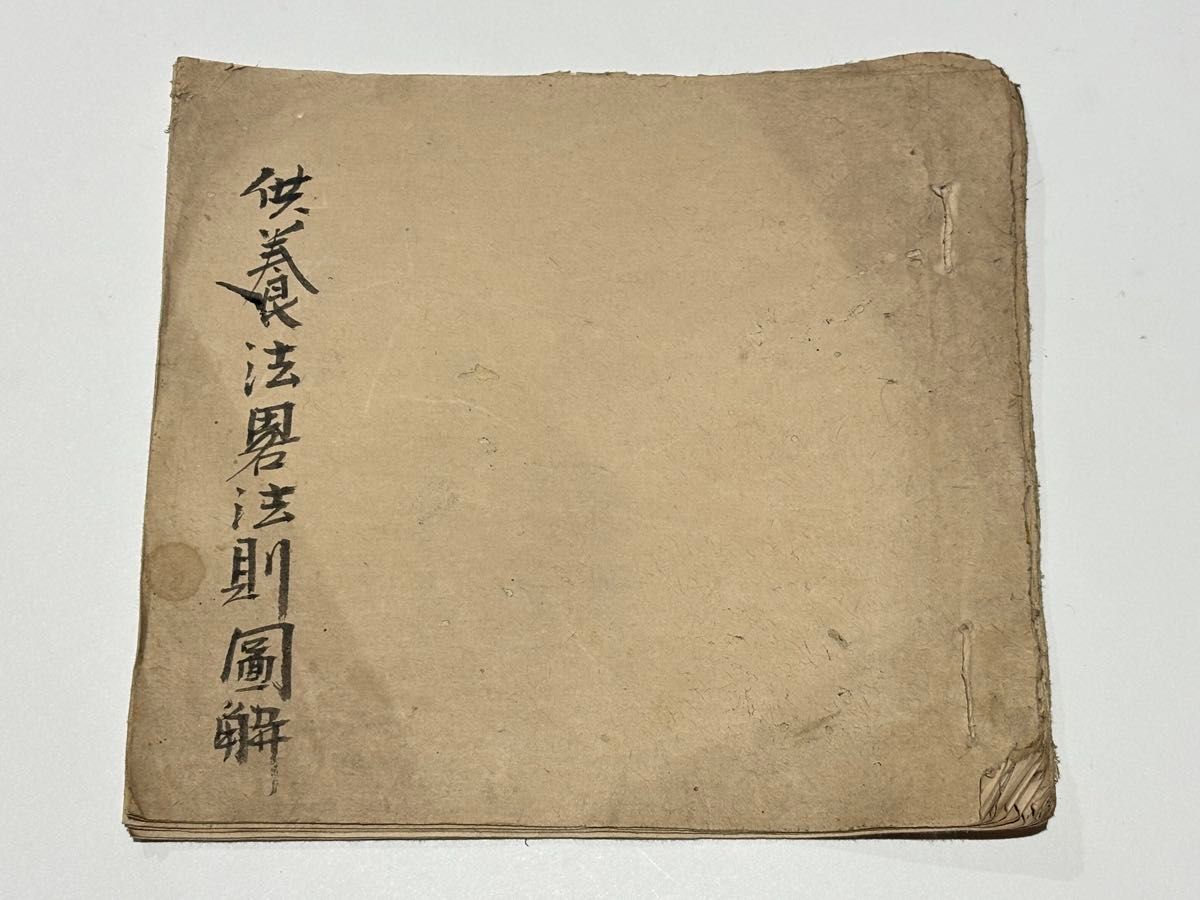 供養法畧法則圖解